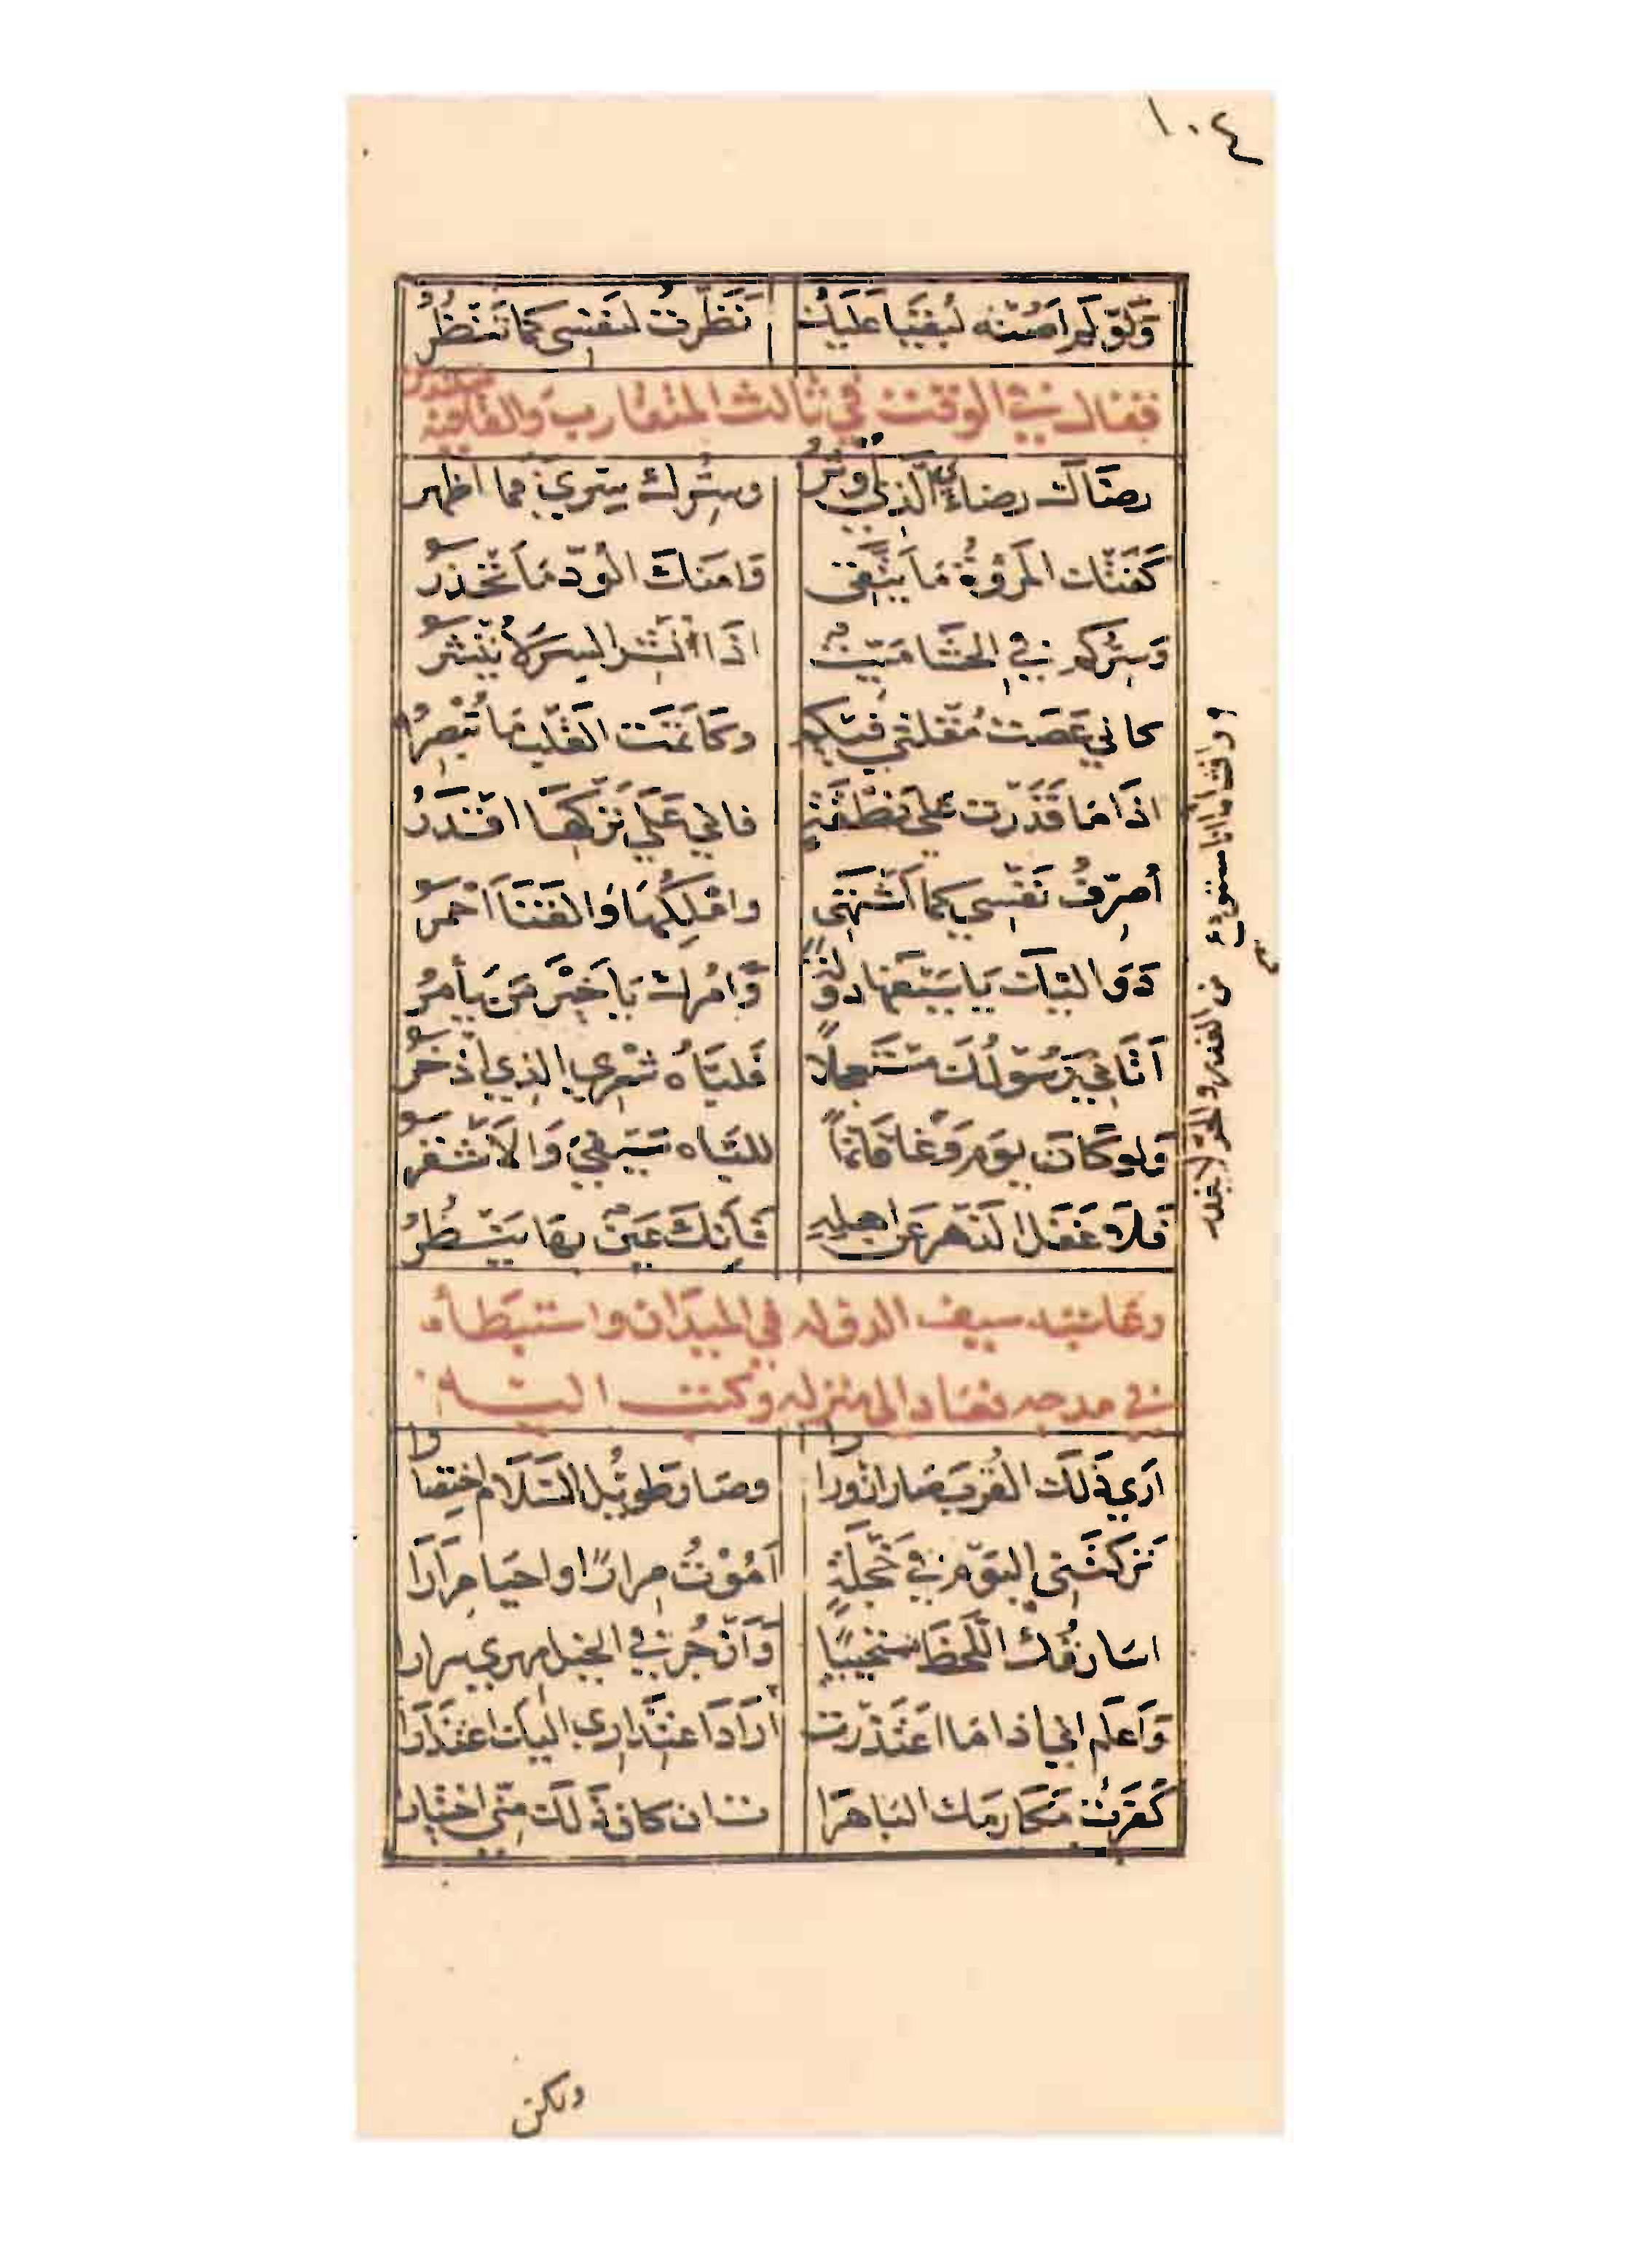 ١٠٤
وَلَوْ لَم اَصُنْه لبُقيَا عَلَيك نَظَرت لنَفسِى كمَا تَنظُرُ
فقال في الوقت في ثالث المتقارب والقافية متدارك
رضَاك رضاي الذي اُوثرُ وسِرّك سِرّي فما اظهر
كَفَتكَ المَرُوّة مَا يتَّقى وَامنكَ الوُدّ مَا تَحْذرُ
وَسِرّكم في الحَشا مَيّت اذَا اُنشِر السِر لاَ يُنشرُ
كاني عَصَت مُقلتي فيكم وكَاتمَت القَلب مَا تُبْصِرُ
اذَا مَا قَدَرت على نطقة فاني عَلَى تركهَا اقدرُ
اُصرّفُ نَفسِي كما اَشتهَى واملِكُهَا وَالقَنا اَحْمرُ
دَوَاليَك يَا سَيفهَا دولةً وَامرك يَا خَير مَن يَأمرُ
اَتَاني رَسُولُكَ مستَعجلاً فَلبَّاه شعْرِي الذي اذخرُ
وَلو كَانَ يَوم وَغا قاتماً للبَّاه سَيفي وَالاشقرُ
فَلاَ غفل الدَهر عَن اهلهِ فَاِنكَ عَين بهَا ينظُرُ
وعاتبه سيف الدوله في الميدان واستبطأه
في مدحه فعاد الى منزله وكتب اليه
اَرَي ذَلكَ القُرب صَار ازورَارا وصَار طَويل السَلام اختِصَارا
تَركتَنِى اليَوم في خَجلَةٍ اَمُوْتُ مِرارًا واحيَا مِرَارَا
اسَارقُكَ اللَحظَ مستحيِيًا وَازجُر في الخيل مهري سِرارا
وَاَعلَم اني اذا مَا اعتَذرت ارَادَ اعتِذارِي اليكَ اعتذَارَا
كَفَرتُ مَكارمك البَاهرَا ت ان كان ذَلكَ منّي اختيارا
ولكن